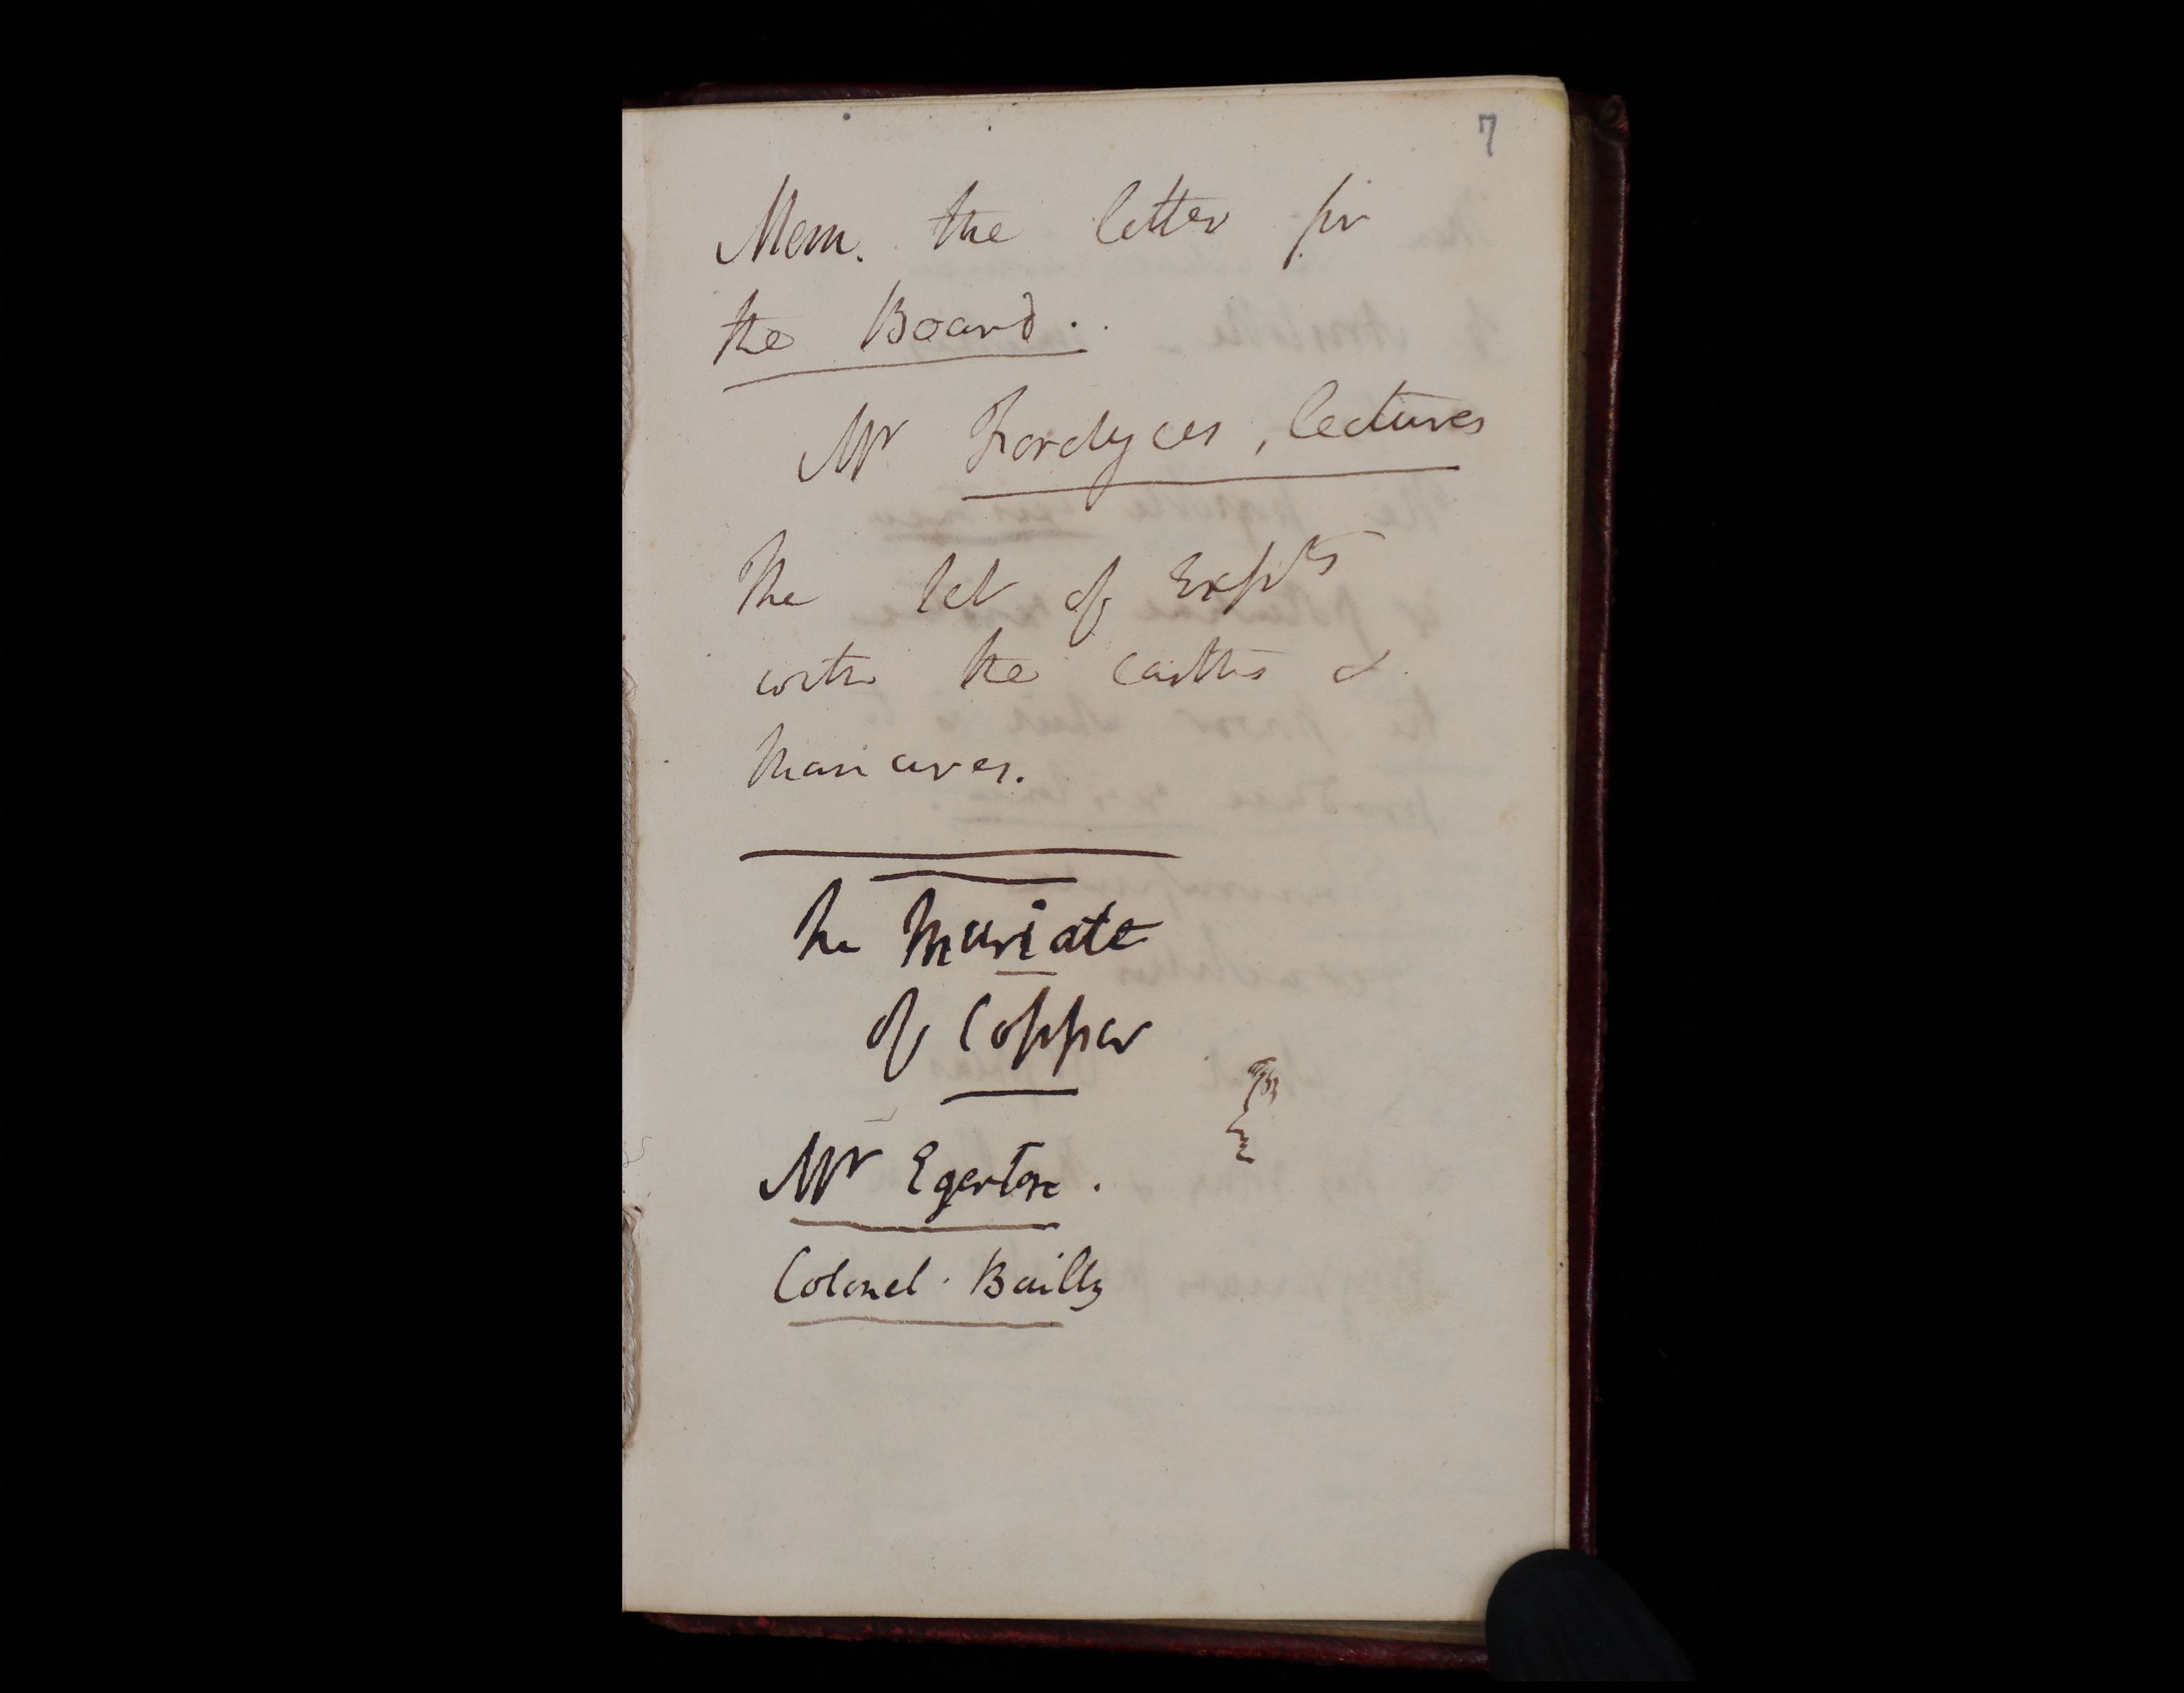 7
Mem. the letter for
the Board.
Mr Fordyces, lectures
The set of Expts
with the earths &
manures.
The Muriate
of Copper
Mr Egerton.
Colonel Bailly